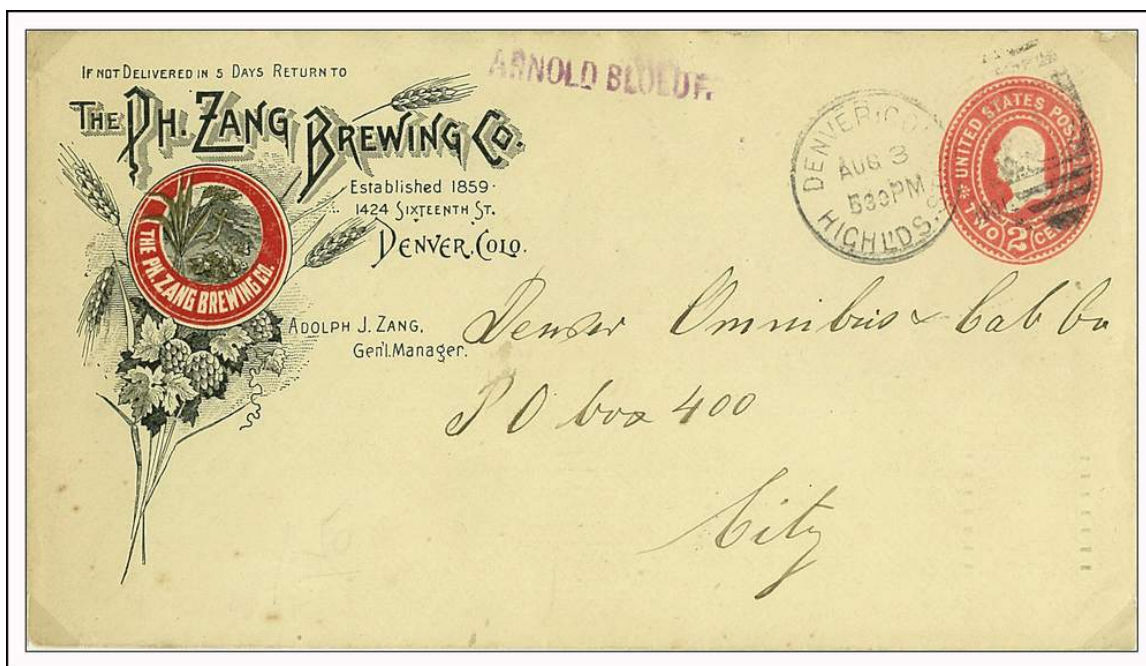 IF NOT DELIVERED IN 5 DAYS RETURN TO
THE PH. ZANG BREWING CO.
Established 1859.
1424 SIXTEENTH ST.
DENVER, COLO.
THE PH. ZANG BREWING CO.
ADOLPH J. ZANG,
Gen'l. Manager.
ARNOLD
DENVER, COLO
AUG 3
530 PM
HIGHL'DS
UNITED STATES POSTAGE
TWO 2 CENTS
Denver Omnibus & Cab Co
P O box 400
City